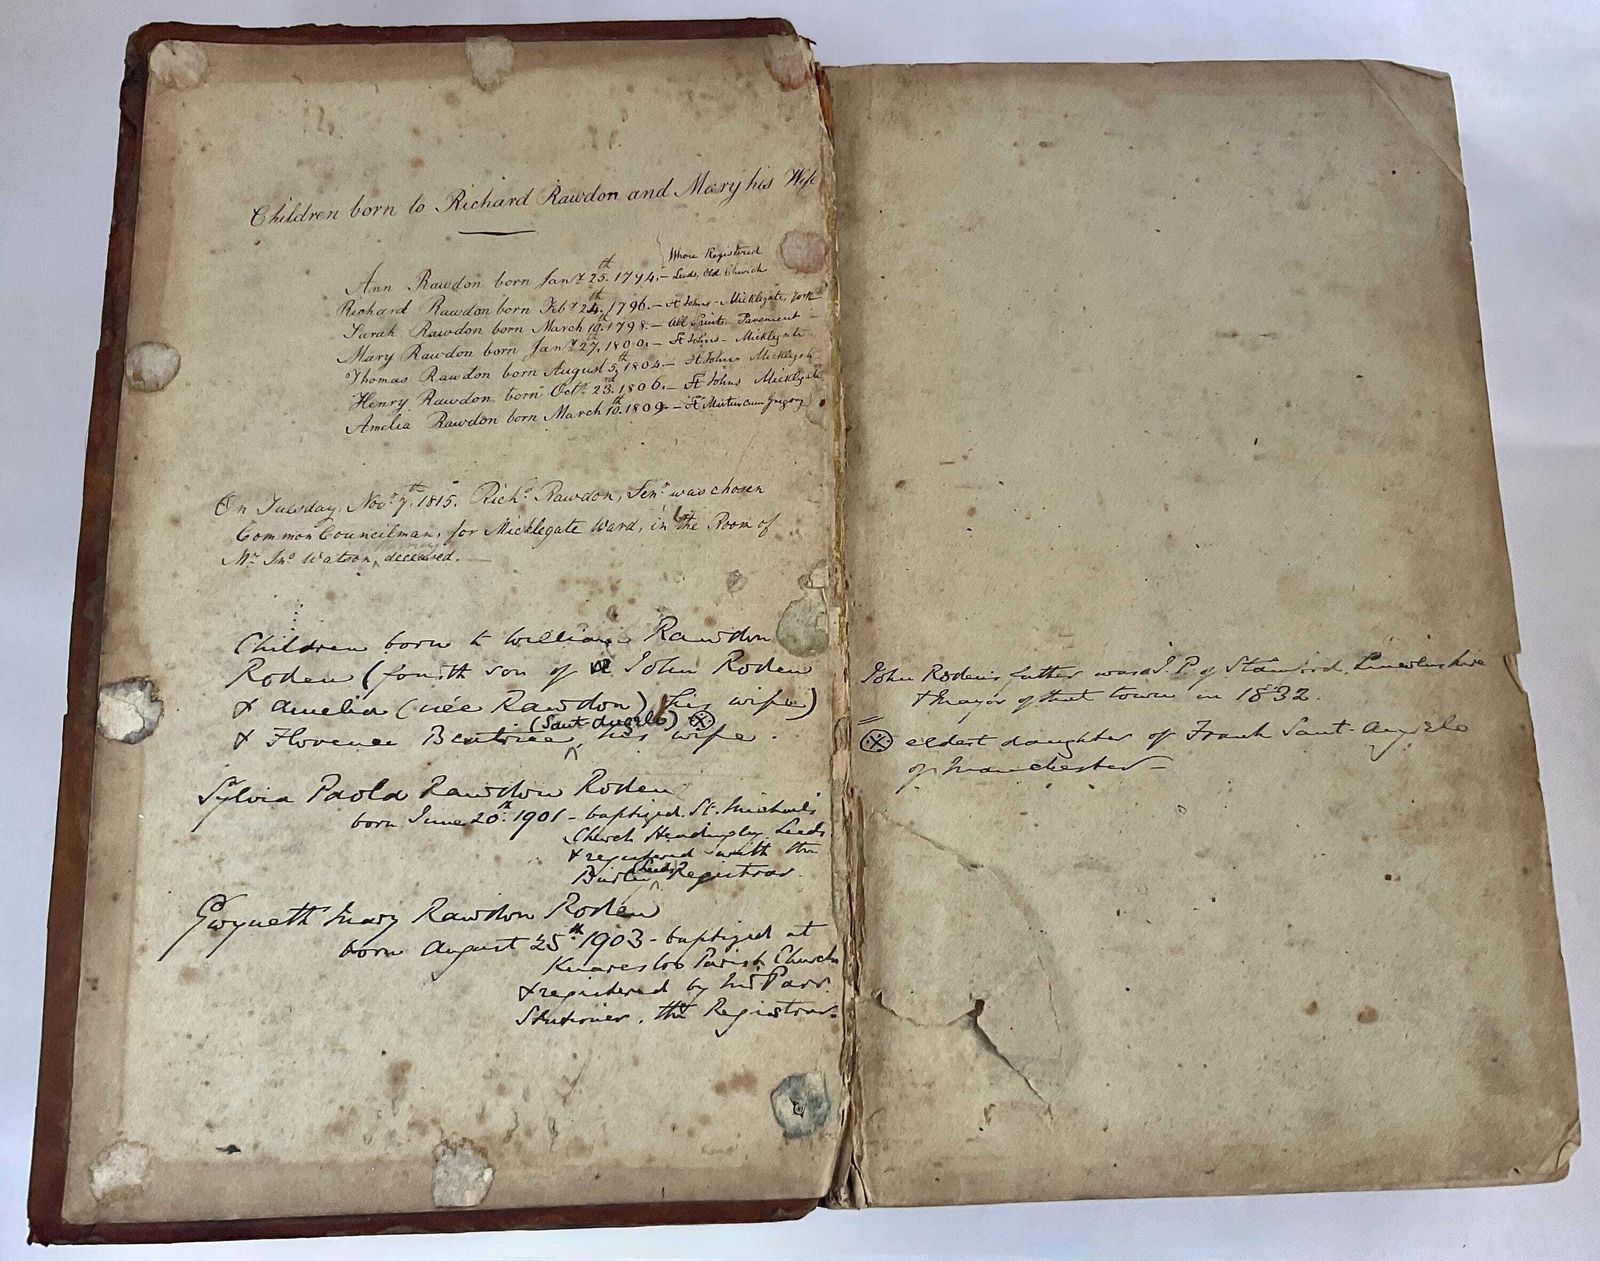 Children born to Richard Rawdon and Mary his Wife
Where Registered
Ann Rawdon born Jany 25th 1794. – Leeds, Old Church
Richard Rawdon born Feby 24th 1796. – St Johns – Micklegate, York
Sarah Rawdon born March 19th 1798. – All Saints Pavement –
Mary Rawdon born Jany 27th 1800. – St Johns – Micklegate
Thomas Rawdon born August 5th 1804 – St Johns Micklegate
Henry Rawdon born Octr 23rd 1806. – St Johns Micklegate
Amelia Rawdon born March 10th 1809. – St Martin cum Gregory
On Tuesday, Novr 7th 1815. Richd Rawdon, Senr was chosen
Common Councilman, for Micklegate Ward, in the Room of
Mr Jno Watson, deceased. –
Children born to William Rawdon
Roden (fourth son of John Roden
& Amelia (née Rawdon) his wife)
& Florence Beatrice (Sant Angelo) his wife.
Sylvia Paola Rawdon Roden
born June 20th 1901 – baptized St. Michael's
Church Headingley Leeds
& registered with the
Leeds Registrar.
Gwyneth Mary Rawdon Roden
born August 25th 1903 – baptized at
Knaresbro Parish Church
& registered by Mr Parr.
Stationer, the Registrar.
John Roden's father was J.P. of Stamford. Lincolnshire
& Mayor of that town in 1832.
eldest daughter of Frank Sant-Angelo
of Manchester –